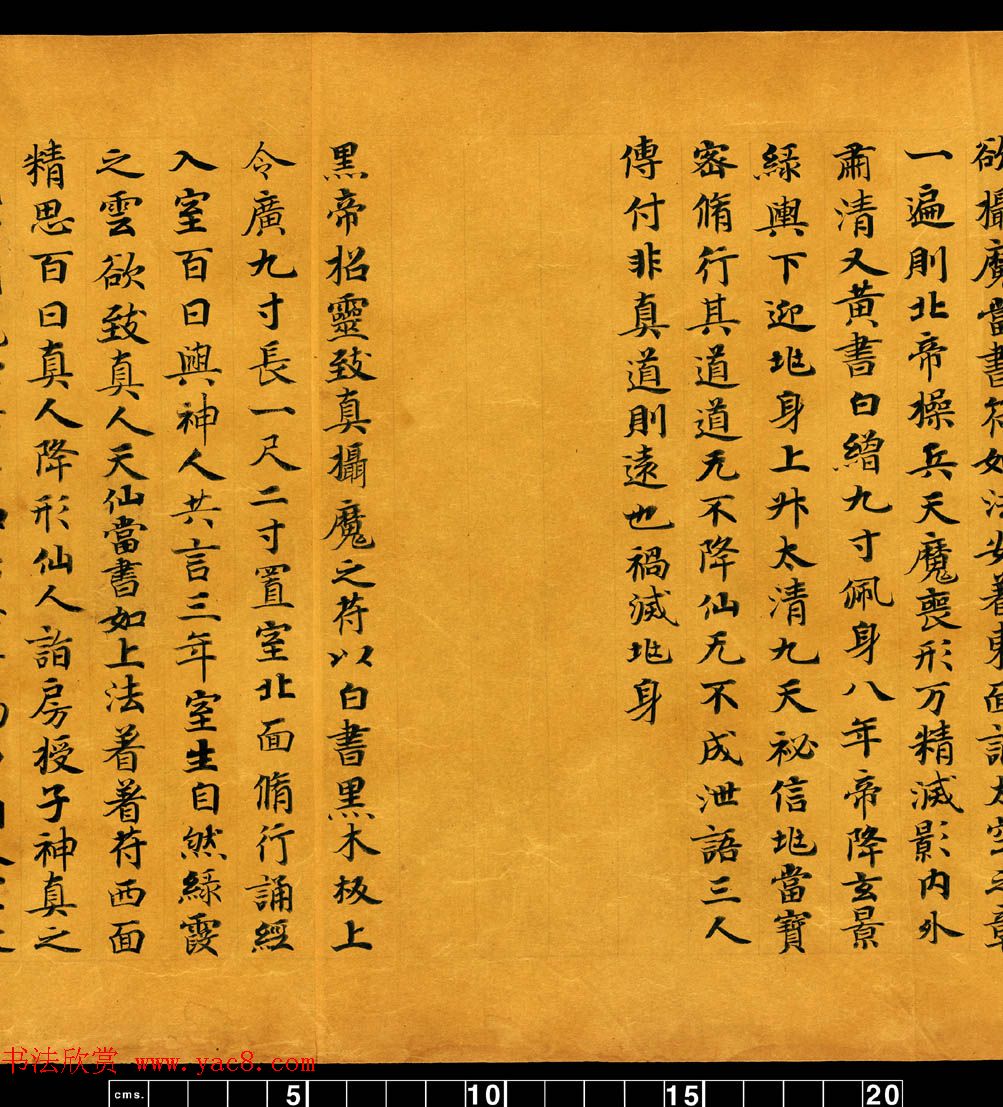 欲攝魔當書符如法安著東面誦太空章
一遍則北帝操兵天魔喪形万精滅影內外
肅清又黃書白繒九寸佩身八年帝降玄景
綠輿下迎兆身上昇太清九天祕信兆當寶
密脩行其道道无不降仙无不成泄語三人
傳付非真道則遠也禍滅兆身
黑帝招靈致真攝魔之苻以白書黑木板上
令廣九寸長一尺二寸置室北面脩行誦經
入室百日與神人共言三年室生自然綠霞
之雲欲致真人天仙當書如上法着著苻西面
精思百日真人降形仙人詣房授子神真之
书法欣赏 www.yac8.com
cms. 5 10 15 20